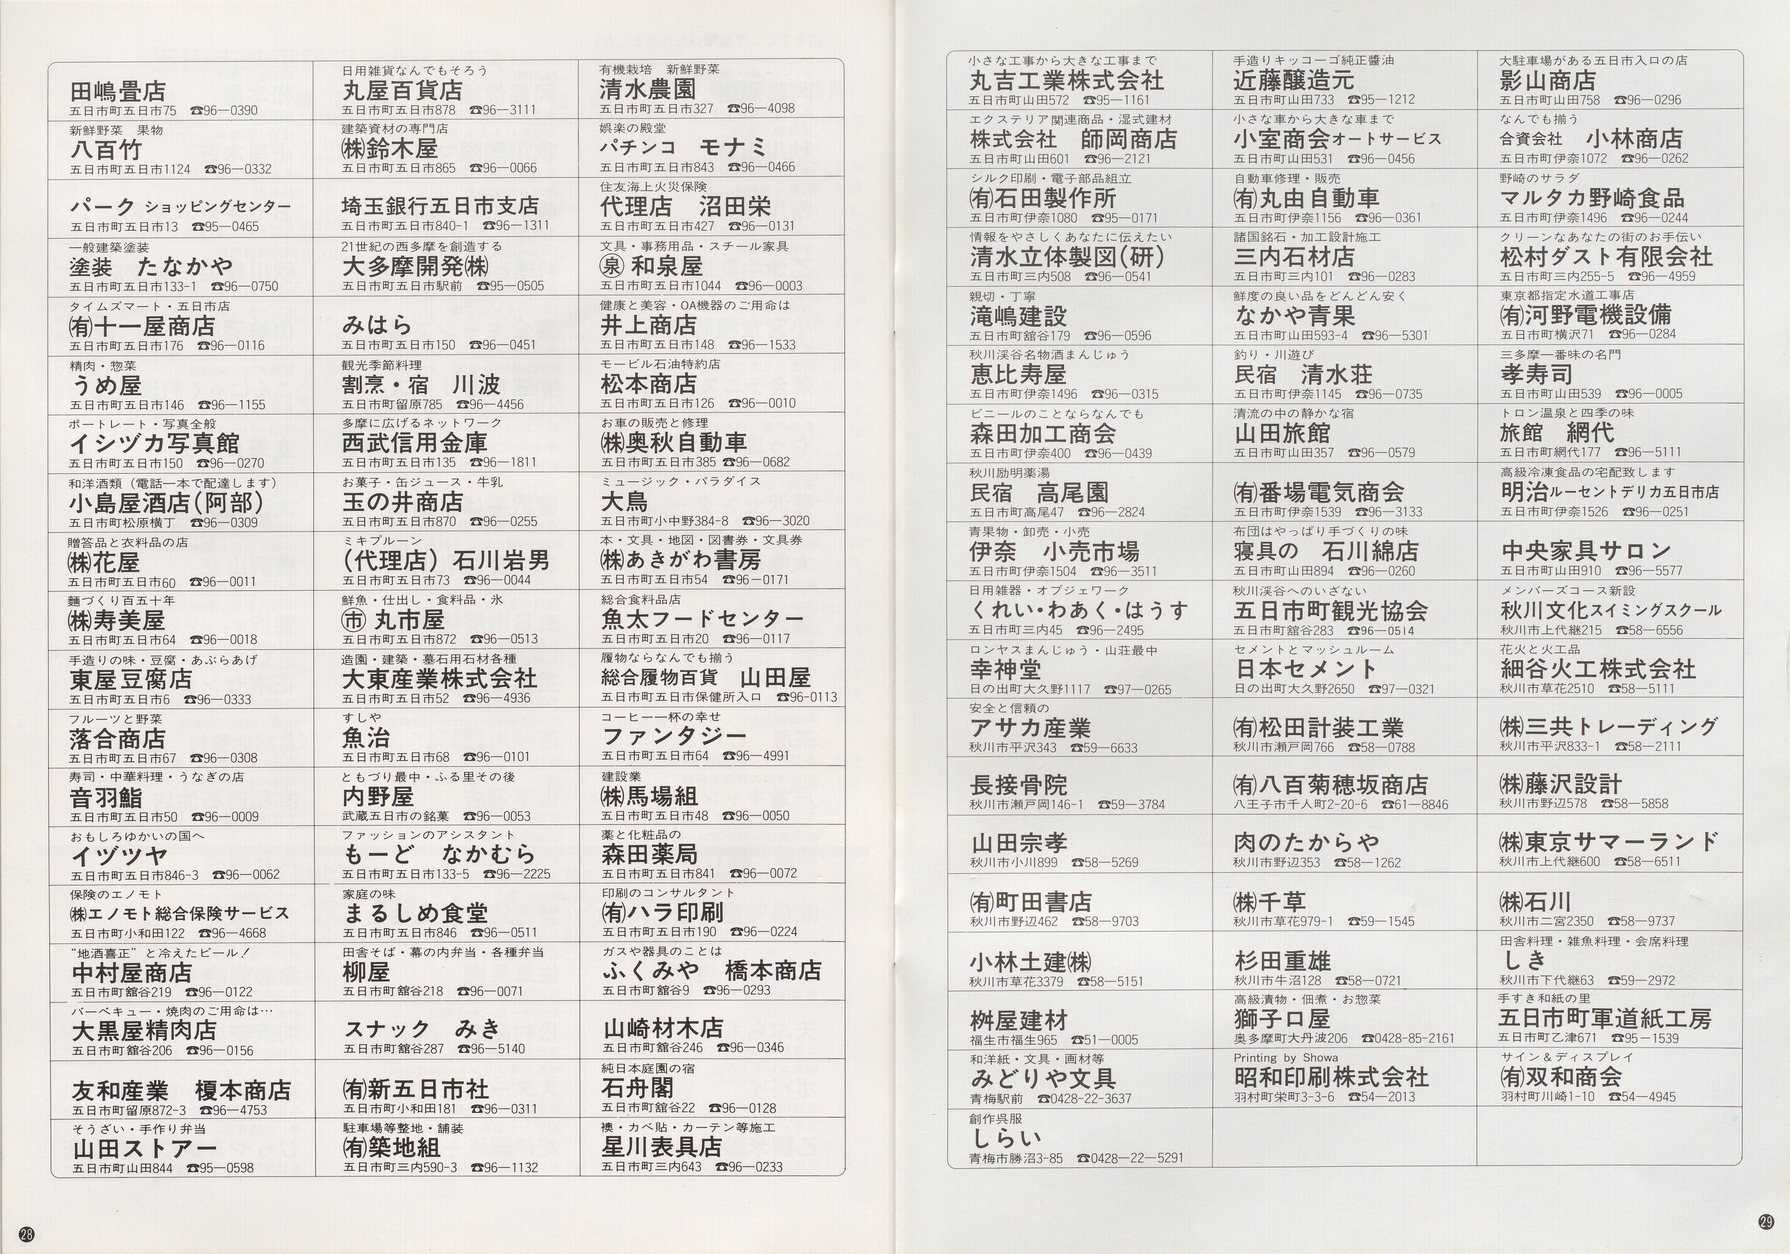 田嶋畳店
五日市町五日市75 ☎96—0390
日用雑貨なんでもそろう
丸屋百貨店
五日市町五日市878 ☎96—3111
有機栽培 新鮮野菜
清水農園
五日市町五日市327 ☎96—4098
新鮮野菜 果物
八百竹
五日市町五日市1124 ☎96—0332
建築資材の専門店
㈱鈴木屋
五日市町五日市865 ☎96—0066
娯楽の殿堂
パチンコ モナミ
五日市町五日市843 ☎96—0466
パーク ショッピングセンター
五日市町五日市13 ☎95—0465
埼玉銀行五日市支店
五日市町五日市840-1 ☎96—1311
住友海上火災保険
代理店 沼田栄
五日市町五日市427 ☎96—0131
一般建築塗装
塗装 たなかや
五日市町五日市133-1 ☎96—0750
21世紀の西多摩を創造する
大多摩開発㈱
五日市町五日市駅前 ☎95—0505
文具・事務用品・スチール家具
㊗泉 和泉屋
五日市町五日市1044 ☎96—0003
タイムズマート・五日市店
㈲十一屋商店
五日市町五日市176 ☎96—0116
みはら
五日市町五日市150 ☎96—0451
健康と美容・OA機器のご用命は
井上商店
五日市町五日市148 ☎96—1533
精肉・惣菜
うめ屋
五日市町五日市146 ☎96—1155
観光季節料理
割烹・宿 川波
五日市町留原785 ☎96—4456
モービル石油特約店
松本商店
五日市町五日市126 ☎96—0010
ポートレート・写真全般
イシヅカ写真館
五日市町五日市150 ☎96—0270
多摩に広げるネットワーク
西武信用金庫
五日市町五日市135 ☎96—1811
お車の販売と修理
㈱奥秋自動車
五日市町五日市385 ☎96—0682
和洋酒類（電話一本で配達します）
小島屋酒店(阿部)
五日市町松原横丁 ☎96—0309
お菓子・缶ジュース・牛乳
玉の井商店
五日市町五日市870 ☎96—0255
ミュージック・パラダイス
大鳥
五日市町小中野384-8 ☎96—3020
贈答品と衣料品の店
㈱花屋
五日市町五日市60 ☎96—0011
ミキプルーン
(代理店) 石川岩男
五日市町五日市73 ☎96—0044
本・文具・地図・図書券・文具券
㈱あきがわ書房
五日市町五日市54 ☎96-0171
麺づくり百五十年
㈱寿美屋
五日市町五日市64 ☎96—0018
鮮魚・仕出し・食料品・氷
市 丸市屋
五日市町五日市872 ☎96—0513
総合食料品店
魚太フードセンター
五日市町五日市20 ☎96—0117
手造りの味・豆腐・あぶらあげ
東屋豆腐店
五日市町五日市6 ☎96—0333
造園・建築・墓石用石材各種
大東産業株式会社
五日市町五日市52 ☎96—4936
履物ならなんでも揃う
総合履物百貨 山田屋
五日市町五日市保健所入口 ☎96-0113
フルーツと野菜
落合商店
五日市町五日市67 ☎96—0308
すしや
魚治
五日市町五日市68 ☎96—0101
コーヒー一杯の幸せ
ファンタジー
五日市町五日市64 ☎96—4991
寿司・中華料理・うなぎの店
音羽鮨
五日市町五日市50 ☎96—0009
ともづり最中・ふる里その後
内野屋
武蔵五日市の銘菓 ☎96—0053
建設業
㈱馬場組
五日市町五日市48 ☎96—0050
おもしろゆかいの国へ
イヅツヤ
五日市町五日市846-3 ☎96—0062
ファッションのアシスタント
もーど なかむら
五日市町五日市133-5 ☎96—2225
薬と化粧品の
森田薬局
五日市町五日市841 ☎96—0072
保険のエノモト
㈱エノモト総合保険サービス
五日市町小和田122 ☎96—4668
家庭の味
まるしめ食堂
五日市町五日市846 ☎96—0511
印刷のコンサルタント
㈲ハラ印刷
五日市町五日市190 ☎96—0224
“地酒喜正”と冷えたビール！
中村屋商店
五日市町舘谷219 ☎96—0122
田舎そば・幕の内弁当・各種弁当
柳屋
五日市町舘谷218 ☎96—0071
ガスや器具のことは
ふくみや 橋本商店
五日市町舘谷9 ☎96—0293
バーベキュー・焼肉のご用命は…
大黒屋精肉店
五日市町舘谷206 ☎96—0156
スナック みき
五日市町舘谷287 ☎96—5140
山崎材木店
五日市町舘谷246 ☎96—0346
友和産業 榎本商店
五日市町留原872-3 ☎96—4753
㈲新五日市社
五日市町小和田181 ☎96—0311
純日本庭園の宿
石舟閣
五日市町舘谷22 ☎96—0128
そうざい・手作り弁当
山田ストアー
五日市町山田844 ☎95—0598
駐車場等整地・舗装
㈲築地組
五日市町三内590-3 ☎96—1132
襖・カベ貼・カーテン等施工
星川表具店
五日市町三内643 ☎96—0233
28
小さな工事から大きな工事まで
丸吉工業株式会社
五日市町山田572 ☎95—1161
手造りキッコーゴ純正醬油
近藤醸造元
五日市町山田733 ☎95—1212
大駐車場がある五日市入口の店
影山商店
五日市町山田758 ☎96—0296
エクステリア関連商品・湿式建材
株式会社 師岡商店
五日市町山田601 ☎96—2121
小さな車から大きな車まで
小室商会オートサービス
五日市町山田531 ☎96—0456
なんでも揃う
合資会社 小林商店
五日市町伊奈1072 ☎96—0262
シルク印刷・電子部品組立
㈲石田製作所
五日市町伊奈1080 ☎95—0171
自動車修理・販売
㈲丸由自動車
五日市町伊奈1156 ☎96—0361
野崎のサラダ
マルタカ野崎食品
五日市町伊奈1496 ☎96—0244
情報をやさしくあなたに伝えたい
清水立体製図(研)
五日市町三内508 ☎96—0541
諸国銘石・加工設計施工
三内石材店
五日市町三内101 ☎96—0283
クリーンなあなたの街のお手伝い
松村ダスト有限会社
五日市町三内255-5 ☎96—4959
親切・丁寧
滝嶋建設
五日市町舘谷179 ☎96—0596
鮮度の良い品をどんどん安く
なかや青果
五日市町山田593-4 ☎96—5301
東京都指定水道工事店
㈲河野電機設備
五日市町横沢71 ☎96—0284
秋川渓谷名物酒まんじゅう
恵比寿屋
五日市町伊奈1496 ☎96—0315
釣り・川遊び
民宿 清水荘
五日市町伊奈1145 ☎96—0735
三多摩一番味の名門
孝寿司
五日市町山田539 ☎96—0005
ビニールのことならなんでも
森田加工商会
五日市町伊奈400 ☎96—0439
清流の中の静かな宿
山田旅館
五日市町山田357 ☎96—0579
トロン温泉と四季の味
旅館 網代
五日市町網代177 ☎96—5111
秋川励明薬湯
民宿 高尾園
五日市町高尾47 ☎96—2824
㈲番場電気商会
五日市町伊奈1539 ☎96—3133
高級冷凍食品の宅配致します
明治ルーセントデリカ五日市店
五日市町伊奈1526 ☎96—0251
青果物・卸売・小売
伊奈 小売市場
五日市町伊奈1504 ☎96—3511
布団はやっぱり手づくりの味
寝具の 石川綿店
五日市町山田894 ☎96—0260
中央家具サロン
五日市町山田910 ☎96—5577
日用雑器・オブジェワーク
くれい・わあく・はうす
五日市町三内45 ☎96—2495
秋川渓谷へのいざない
五日市町観光協会
五日市町舘谷283 ☎96—0514
メンバーズコース新設
秋川文化スイミングスクール
秋川市上代継215 ☎58—6556
ロンヤスまんじゅう・山荘最中
幸神堂
日の出町大久野1117 ☎97—0265
セメントとマッシュルーム
日本セメント
日の出町大久野2650 ☎97—0321
花火と火工品
細谷火工株式会社
秋川市草花2510 ☎58—5111
安全と信頼の
アサカ産業
秋川市平沢343 ☎59—6633
㈲松田計装工業
秋川市瀬戸岡766 ☎58—0788
㈱三共トレーディング
秋川市平沢833-1 ☎58—2111
長接骨院
秋川市瀬戸岡146-1 ☎59—3784
㈲八百菊穂坂商店
八王子市千人町2-20-6 ☎61—8846
㈱藤沢設計
秋川市野辺578 ☎58—5858
山田宗孝
秋川市小川899 ☎58—5269
肉のたからや
秋川市野辺353 ☎58—1262
㈱東京サマーランド
秋川市上代継600 ☎58—6511
㈲町田書店
秋川市野辺462 ☎58—9703
㈱千草
秋川市草花979-1 ☎59—1545
㈱石川
秋川市二宮2350 ☎58—9737
小林土建㈱
秋川市草花3379 ☎58—5151
杉田重雄
秋川市牛沼128 ☎58—0721
田舎料理・雑魚料理・会席料理
しき
秋川市下代継63 ☎59—2972
桝屋建材
福生市福生965 ☎51—0005
高級漬物・佃煮・お惣菜
獅子口屋
奥多摩町大丹波206 ☎0428-85-2161
手すき和紙の里
五日市町軍道紙工房
五日市町乙津671 ☎95-1539
和洋紙・文具・画材等
みどりや文具
青梅駅前 ☎0428-22-3637
Printing by Showa
昭和印刷株式会社
羽村町栄町3-3-6 ☎54—2013
サイン＆ディスプレイ
㈲双和商会
羽村町川崎1-10 ☎54—4945
創作呉服
しらい
青梅市勝沼3-85 ☎0428—22—5291
29